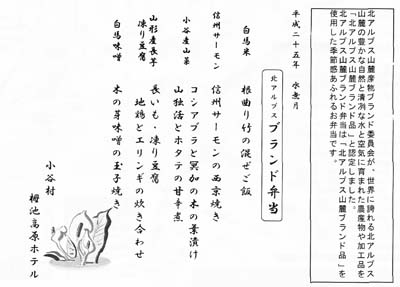 北アルプス山麓産物ブランド委員会が、世界に誇れる北アルプス
山麓の豊かな自然と清冽な水と空気に育まれた農産物や加工品を
「北アルプス山麓ブランド品」と認定しました。
北アルプス山麓ブランド弁当は「北アルプス山麓ブランド品」を
使用した季節感あふれるお弁当です。
平成二十五年 水無月
北アルプス ブランド弁当
白馬米 根曲り竹の混ぜご飯
信州サーモン 信州サーモンの西京焼き
小谷産山菜 コシアブラと冥加の木の葉漬け
山独活とホタテの甘辛煮
山形産長芋 長いも・凍り豆腐
凍り豆腐 地鶏とエリンギの炊き合わせ
白馬味噌 木の芽味噌の玉子焼き
小谷村
栂池高原ホテル